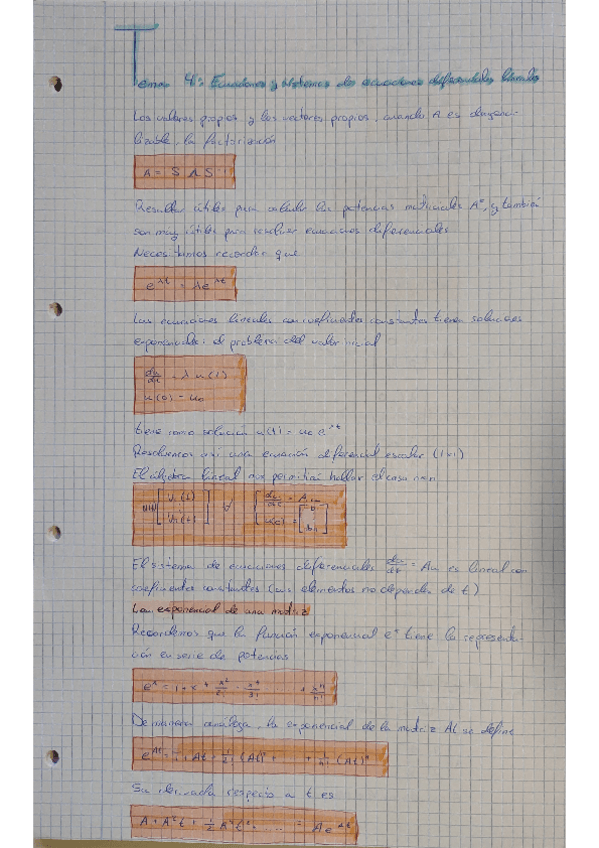 Tema 4: Ecuaciones y sistemas de ecuaciones diferenciales lineales
Los valores propios y los vectores propios, cuando A es diagona-
lizable, la factorización
A = S Λ S⁻¹
Resultan útiles para calcular las potencias matriciales Aⁿ, y también
son muy útiles para resolver ecuaciones diferenciales
Necesitamos recordar que
e^λt = λe^λt
Las ecuaciones lineales con coeficientes constantes tienen soluciones
exponenciales: el problema del valor inicial
du/dt = λ u(t)
u(0) = u₀
tiene como solución u(t) = u₀ e^λt
Resolvemos así una ecuación diferencial escalar (1×1)
El álgebra lineal nos permitirá hallar el caso n×n
u(t) y du/dt = Au
u(0) =
El sistema de ecuaciones diferenciales du/dt = Au es lineal con
coeficientes constantes (sus elementos no dependen de t)
La exponencial de una matriz
Recordemos que la función exponencial eˣ tiene la representa-
ción en serie de potencias
De manera análoga, la exponencial de la matriz At se define
e^At = I + At + 1/2! (At)² + ... + 1/n! (At)ⁿ
Su derivada respecto a t es
A + A²t + 1/2 A³t² + ... = A e^At